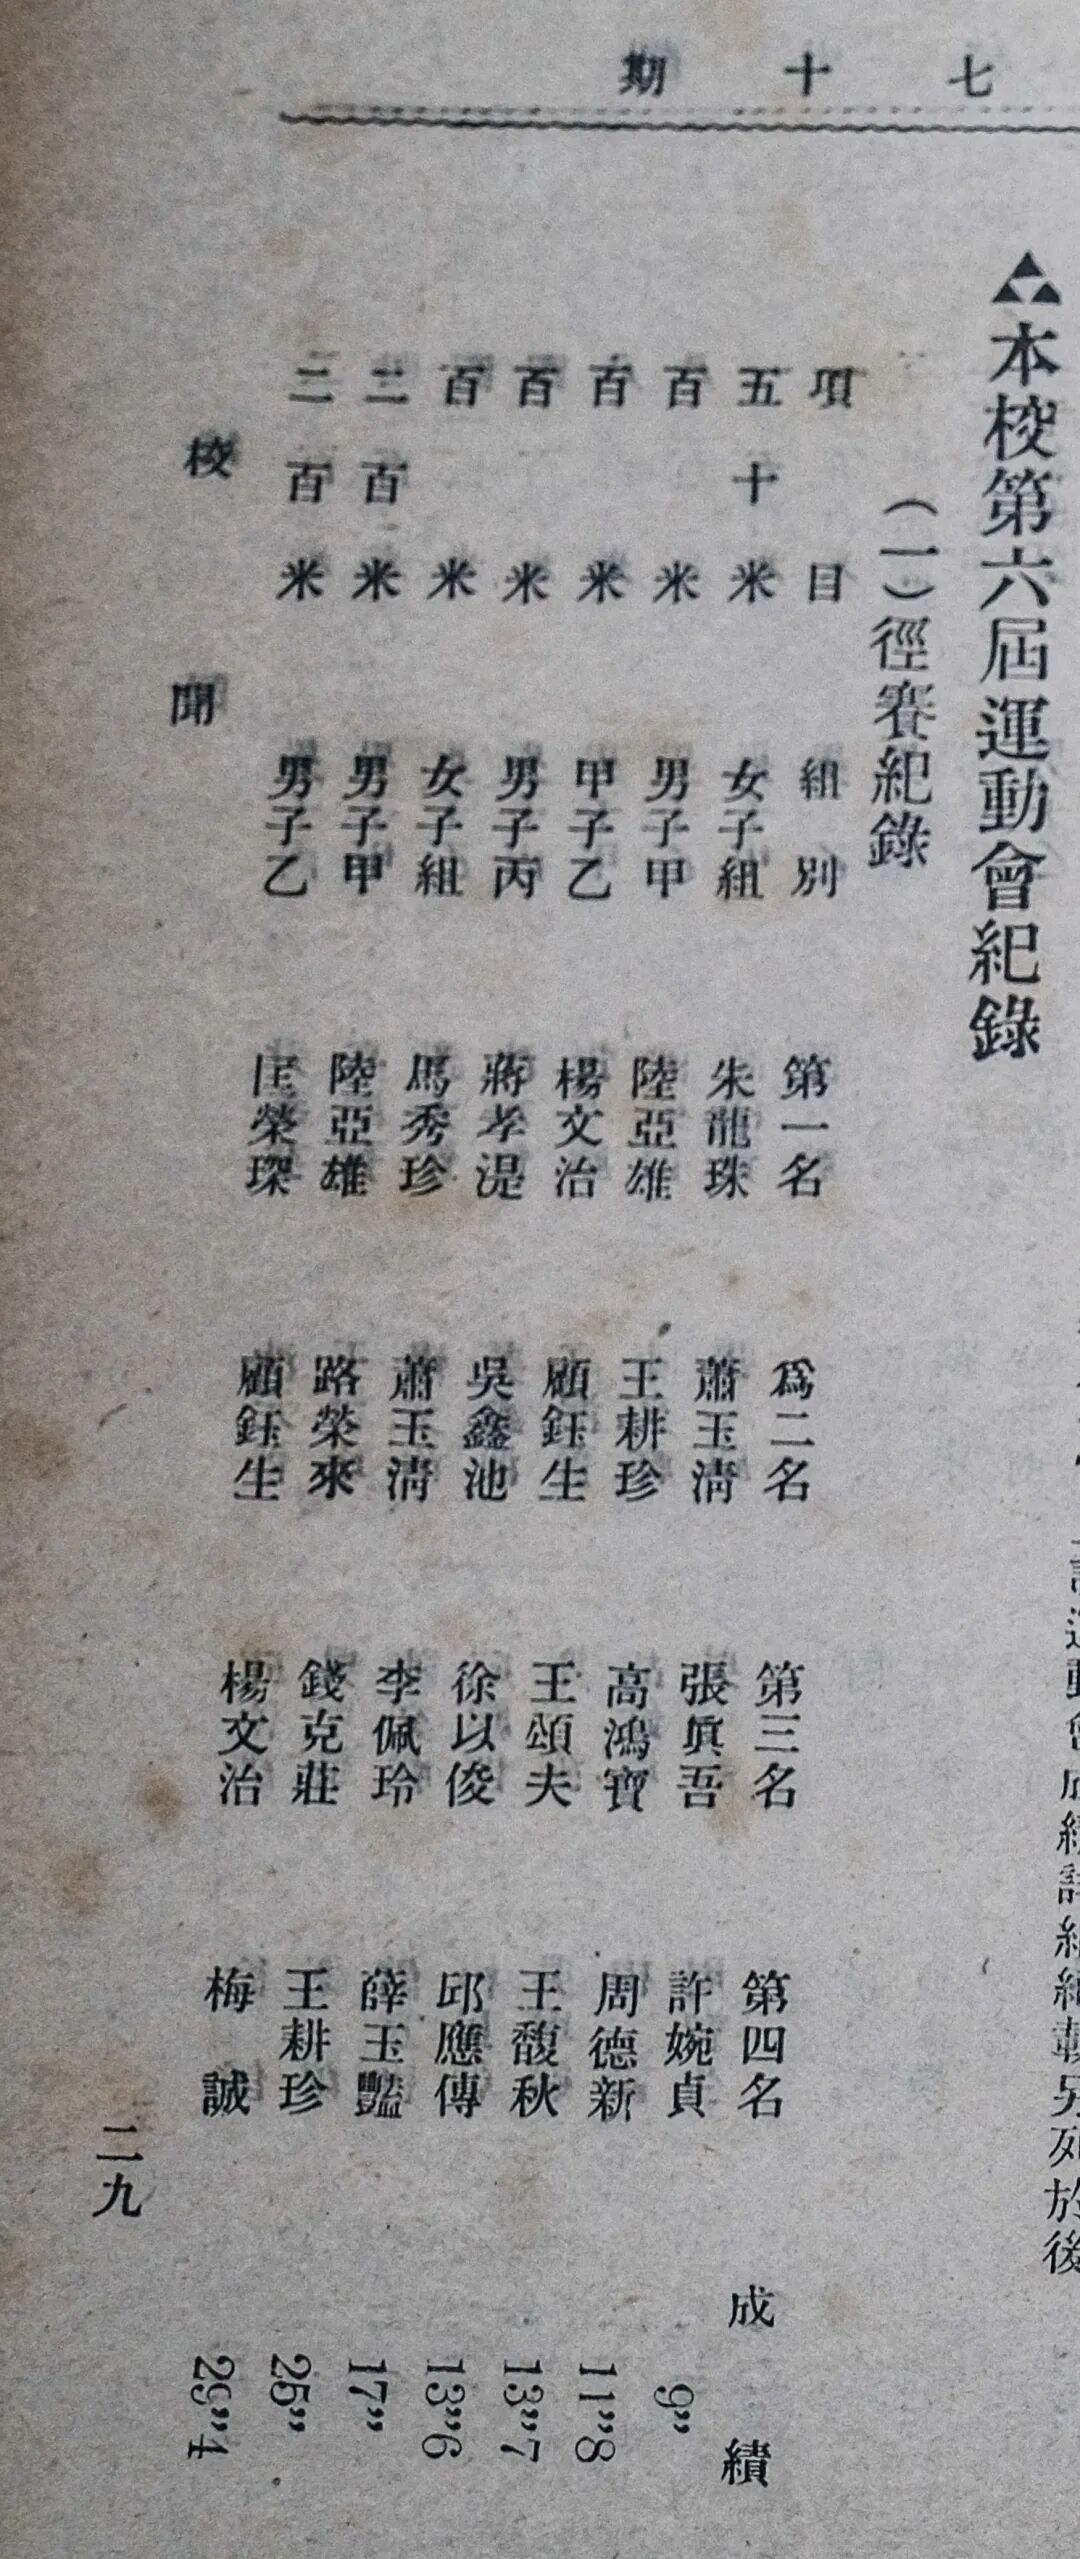 七十期
詳細紀載另列於後
▲本校第六屆運動會紀錄
(一)徑賽紀錄
項目 組別 第一名 為二名 第三名 第四名 成績
五十米 女子組 朱龍珠 蕭玉清 張眞吾 許婉貞 9"
百米 男子甲 陸亞雄 王耕珍 高鴻寶 周德新 11"8
百米 甲子乙 楊文治 顧鈺生 王頌夫 王馥秋 13"7
百米 男子丙 蔣孝湜 吳鑫池 徐以俊 邱應傳 13"6
百米 女子組 馬秀珍 蕭玉清 李佩玲 薛玉豔 17"
二百米 男子甲 陸亞雄 路榮來 錢克莊 王耕珍 25"
二百米 男子乙 匡榮琛 顧鈺生 楊文治 梅誠 29"4
校聞
二九